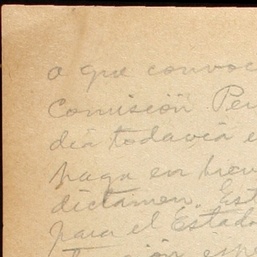 a que convoc
Comisión Per
dia todavia e
haga en brev
dictamen. Est
para el Estado